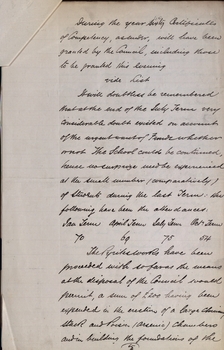 During the year Sixty Certificates
of Competency, as under, will have been
granted by the Council, including those
to be granted this evening
vide List
It will doubtless be remembered
that at the end of the July Term very
considerable doubt existed on account
of the urgent want of Funds whether
or not The School could be continued,
hence no surprise need be experienced
at the small number (comparatively)
of Students during the last Term: the
following have been the attendances.
Jan Term April Term July Term Oct Term
70 69 75 54
The have been
proceeded with so far as the means
at the disposal of the Council would
permit, a sum of £200 having been
expended in the erection of a large
Stack and (Arsenic) Chambers
and in building the foundations of the